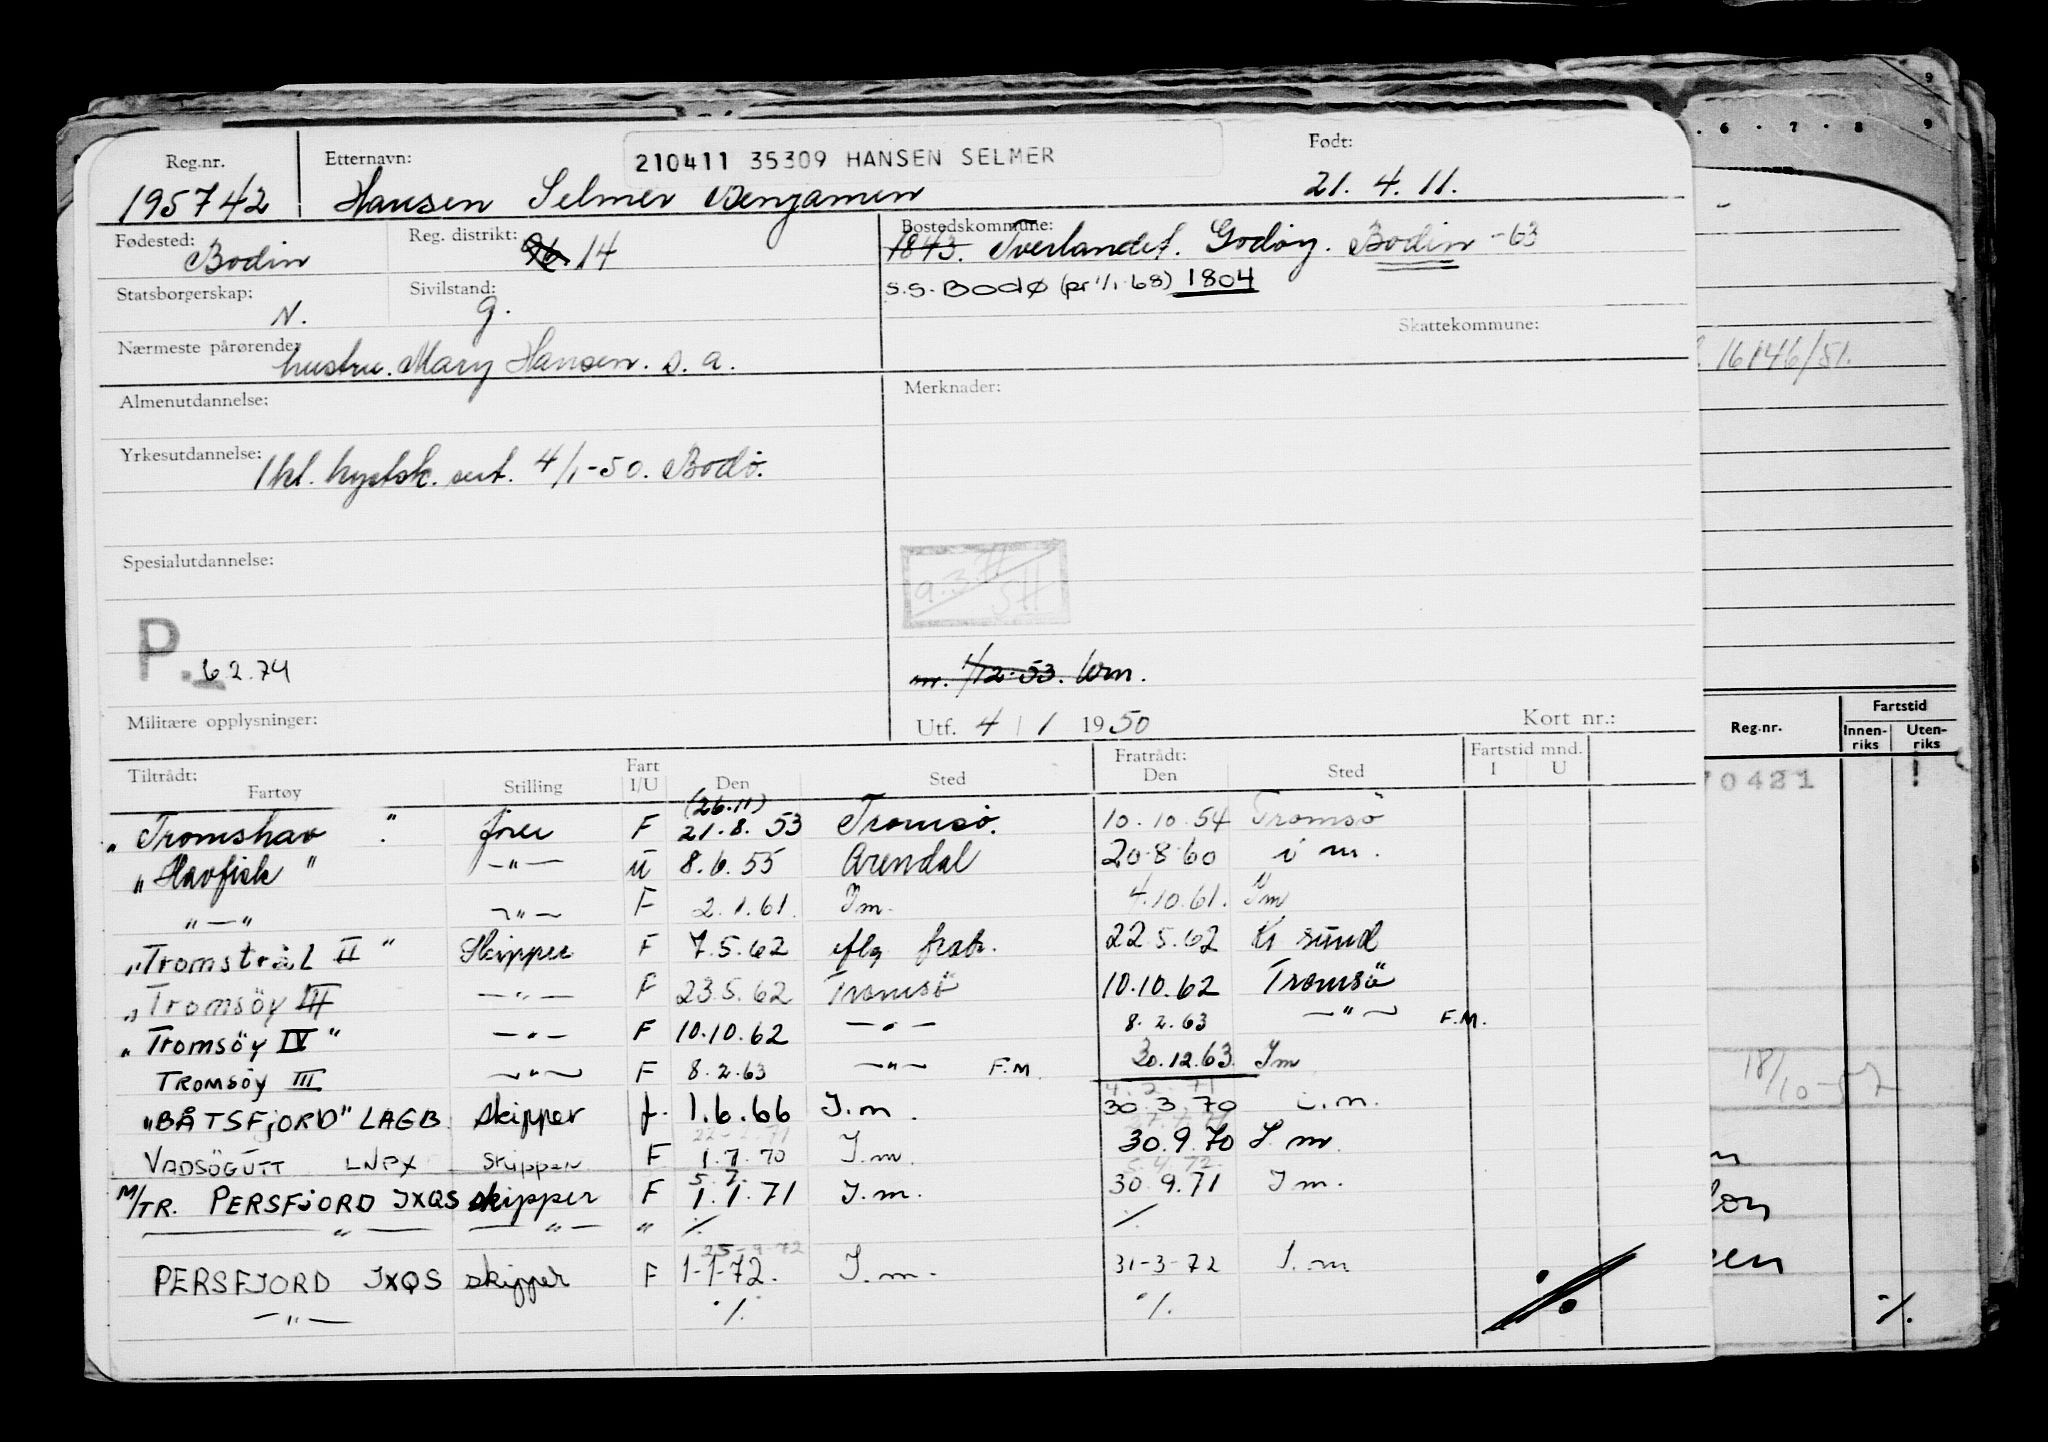 Reg.nr. Etternavn: 210411 35309 HANSEN SELMER Født:
195742 Hansen Selmer Benjamin 21. 4. 11.
Fødested: Bodin Reg. distrikt: 14 Bostedskommune: 1843. Tverlandet. Godøy. Bodin -63
Statsborgerskap: N. Sivilstand: g. S.S. BODØ (pr 1/1-68) 1804
Skattekommune:
Nærmeste pårørende: hustru. Mary Hansen. s. a.
Almenutdannelse: Merknader:
Yrkesutdannelse: 1 kl. kystsk. sert. 4/1-50. Bodö.
Spesialutdannelse:
P. 6.2.74
m. 1/12-53.
Militære opplysninger: Utf. 4 / 1 1950 Kort nr.:
Tiltrådt: Fratrådt: Fartstid mnd.
Fartøy Stilling Fart I/U Den Sted Den Sted I U
(26.11)
"Tromshav" förer F 21.8.53 Tromsö. 10.10.54 Tromsö
"Havfisk" -"- U 8.6.55 Arendal 20.8.60 i m.
"-" -"- F 2.1.61. I m. 4.10.61. I m
"Tromstrål II" Skipper F 7.5.62 22.5.62 Kr sund
"Tromsöy III -"- F 23.5.62 Tromsö 10.10.62 Tromsö
"Tromsöy IV" -"- F 10.10.62 -"- 8.2.63 -"- F.M.
TROMSÖY III -"- F 8.2.63 -"- F.M. 30.12.63 I m
4.2.71
"BÅTSFJORD" LAGB. skipper f. 1.6.66 I.m. 30.3.70 i.m.
VADSÖGUTT LNPX skipper F 1.7.70 I.m. 30.9.70 I.m.
5.7. 5.4.72
M/TR. PERSFJORD JXQS skipper F 1.1.71 I.m. 30.9.71 I m.
-"- -"- " ./. ./.
25-9-72
PERSFJORD JXQS skipper F 1-1-72. I.m. 31-3-72 I.m
-"- ./. ./. ./.
6 7 8 9
16146/51.
Fartstid
Reg.nr. Innen-riks Uten-riks
70421 !
18/10-57
./.